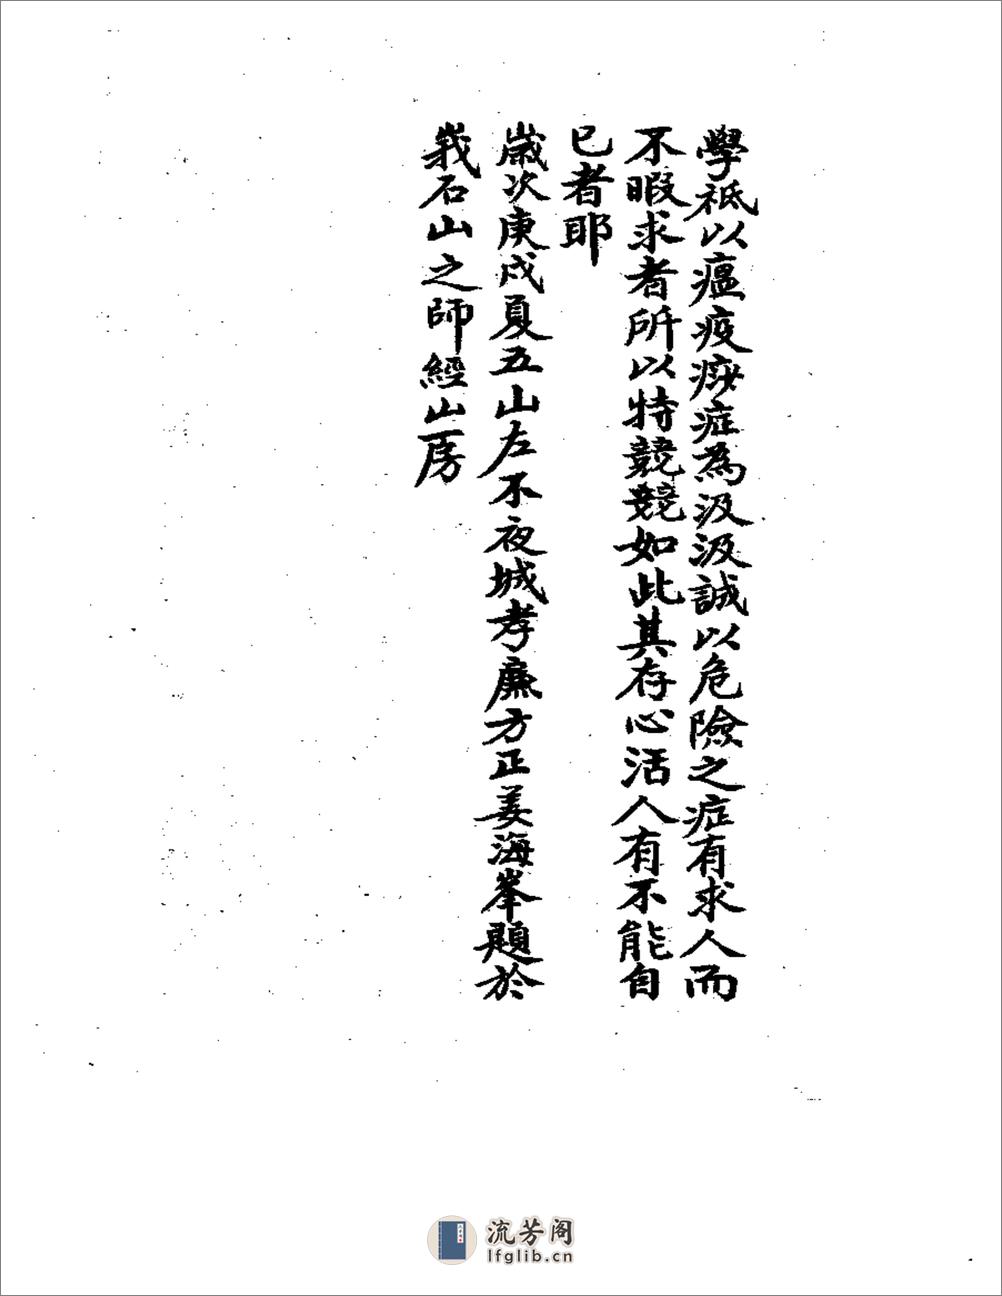 學祗以瘟疫痧症為汲汲誠以危險之症有求人而
不暇求者所以特競競如此其存心活人有不能自
已者耶
歲次庚戌夏五山左不夜城孝廉方正姜海峯題於
峩石山之師經山房
流芳阁
lfglib.cn